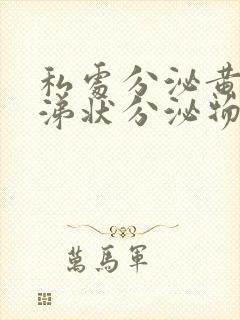 私處分泌黃
涕狀分泌物
萬馬軍